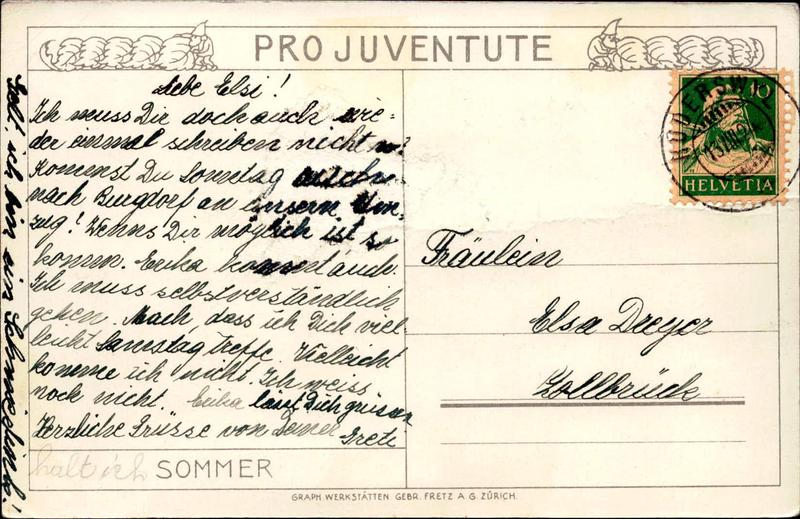 PRO JUVENTUTE
Liebe Elsi!
Ich muss Dir doch auch wie-
der einmal schreiben nicht
Kommst Du Sonntag
nach Burgdorf an unsern Um-
zug! Wenns Dir möglich ist so
komm. Erika kommt auch.
Ich muss selbstverständlich
gehen. Mach, dass ich Dich viel-
leicht Samstag treffe. Vielleicht
komme ich nicht. Ich weiss
noch nicht. Erika lässt Dich grüssen
Herzliche Grüsse von Deiner Greti
halt ich
SOMMER
Gelt, ich bin ein
HELVETIA
10
Fräulein
Elsa Dreyer
Zollbrück
GRAPH. WERKSTÄTTEN GEBR. FRETZ A. G. ZÜRICH.